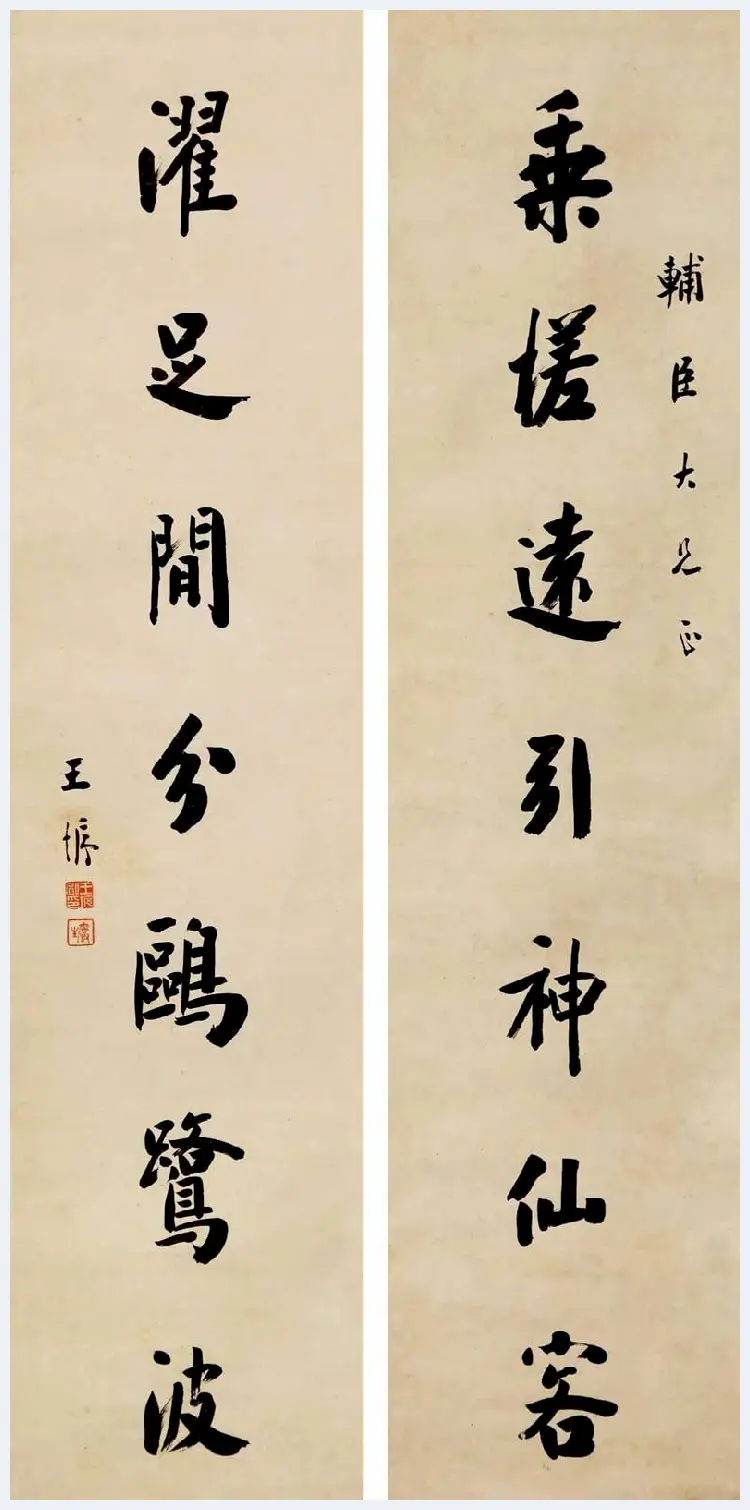 乘槎遠引神仙客
輔臣大兄正
濯足閒分鷗鷺波
王垿